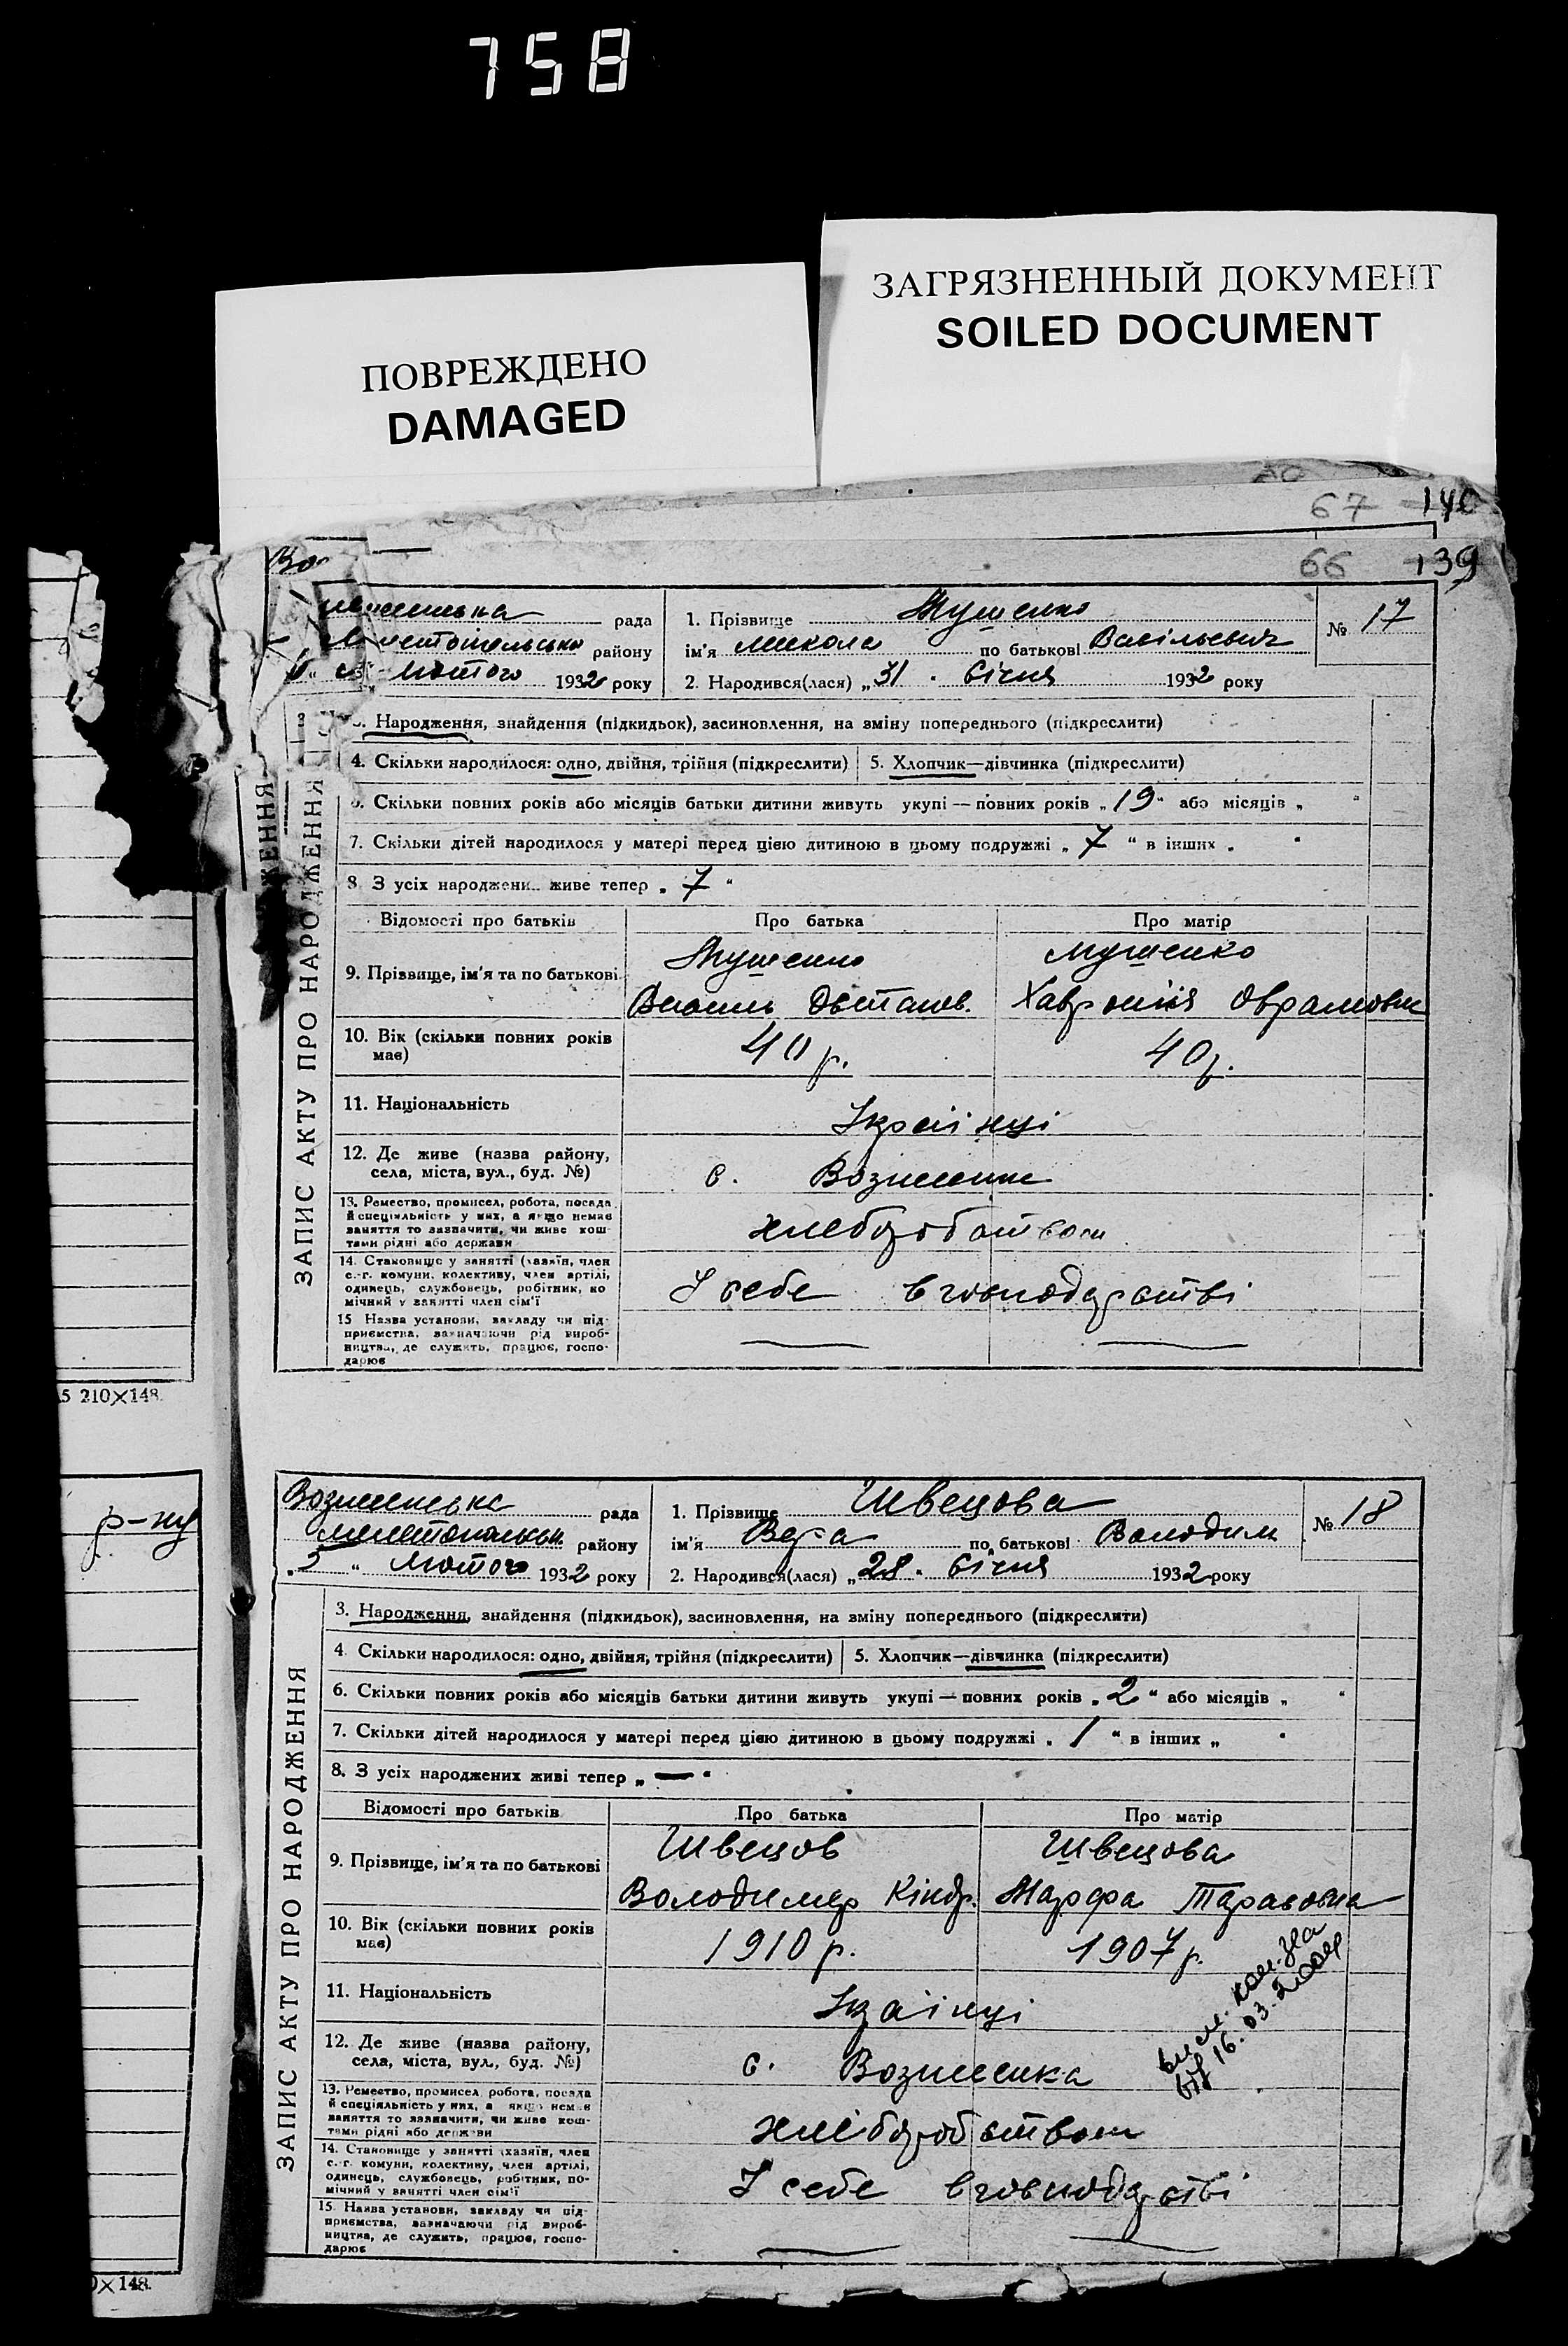 758
ЗАГРЯЗНЕННЫЙ ДОКУМЕНТ
SOILED DOCUMENT
ПОВРЕЖДЕНО
DAMAGED
67 140
66 139
рада
району
лютого 1932 року
1. Прізвище Мушенко
ім'я Микола по батькові Васільевич
2. Народився(лася) „31" Січня 1932 року
№ 17
ЗАПИС АКТУ ПРО НАРОДЖЕННЯ
Народження, знайдення (підкидьок), засиновлення, на зміну попереднього (підкреслити)
4. Скільки народилося: одно, двійня, трійня (підкреслити) 5. Хлопчик—дівчинка (підкреслити)
Скільки повних років або місяців батьки дитини живуть укупі — повних років „19" або місяців „ "
7. Скільки дітей народилося у матері перед цією дитиною в цьому подружжі „7" в інших „ "
8. З усіх народжени.. живе тепер „7"
Відомості про батьків Про батька Про матір
9. Прізвище, ім'я та по батькові
Мушенко Мушенко
Хавронія
10. Вік (скільки повних років має) 40 р. 40 р.
11. Національність Українці
12. Де живе (назва району, села, міста, вул., буд. №) с.
13. Ремество, промисел, робота, посада
й спеціяльність у них, а якщо немає
заняття то зазначити, чи живе кош-
тами рідні або держави
хліборобством
14. Становище у занятті (хазяїн, член
с.-г. комуни, колективу, член артілі,
одинець, службовець, робітник, по
мічний у занятті член сім'ї
У себе в господарстві
15 Назва установи, закладу чи під-
приємства, зазначаючи рід вироб-
ництва, де служить, працює, госпо-
дарює
5 210×148.
р-ну
рада
району
лютого 1932 року
1. Прізвище Швецова
ім'я Вера по батькові Володим
2. Народився(лася) „28" Січня 1932 року
№ 18
ЗАПИС АКТУ ПРО НАРОДЖЕННЯ
3. Народження, знайдення (підкидьок), засиновлення, на зміну попереднього (підкреслити)
4 Скільки народилося: одно, двійня, трійня (підкреслити) 5. Хлопчик—дівчинка (підкреслити)
6. Скільки повних років або місяців батьки дитини живуть укупі — повних років „2" або місяців „ "
7. Скільки дітей народилося у матері перед цією дитиною в цьому подружжі „1" в інших „ "
8. З усіх народжених живі тепер „—"
Відомості про батьків Про батька Про матір
9. Прізвище, ім'я та по батькові
Швецов Швецова
Володимер Кіндр. Марфа Тарасовна
10. Вік (скільки повних років має) 1910 р. 1907 р.
11. Національність
12. Де живе (назва району, села, міста, вул., буд. №) с. Вознесенка
16.03.
13. Ремество, промисел, робота, посада
й спеціяльність у них, а якщо немає
заняття то зазначити, чи живе кош-
тами рідні або держави
хліборобством
14. Становище у занятті (хазяїн, член
с.-г. комуни, колективу, член артілі,
одинець, службовець, робітник, по-
мічний у занятті член сім'ї
У себе в господарстві
15. Назва установи, закладу чи під-
приємства, зазначаючи рід вироб-
ництва, де служить, працює, госпо-
дарює
×148.